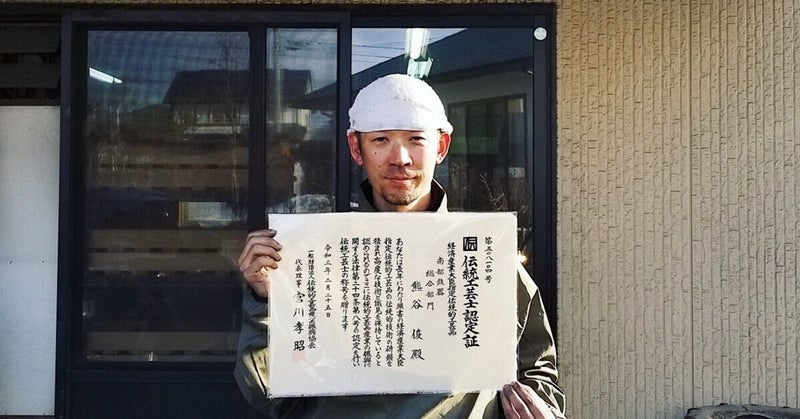 伝 伝統工芸士認定証
経済産業大臣指定伝統的工芸品
南部鉄器
総合部門
熊谷 俊 殿
あなたは長年にわたり頭書の経済産業大臣
指定伝統的工芸品の伝統的技術の研鑽を
積まれ高度な技術と識見を保持していると
認められるのでここに伝統的工芸品産業の振興に
関する法律第二十四条第八号の認定を行い
伝統工芸士の称号を贈ります
令和三年二月二十五日
一般財団法人伝統的工芸品産業振興協会
代表理事 宮川孝昭